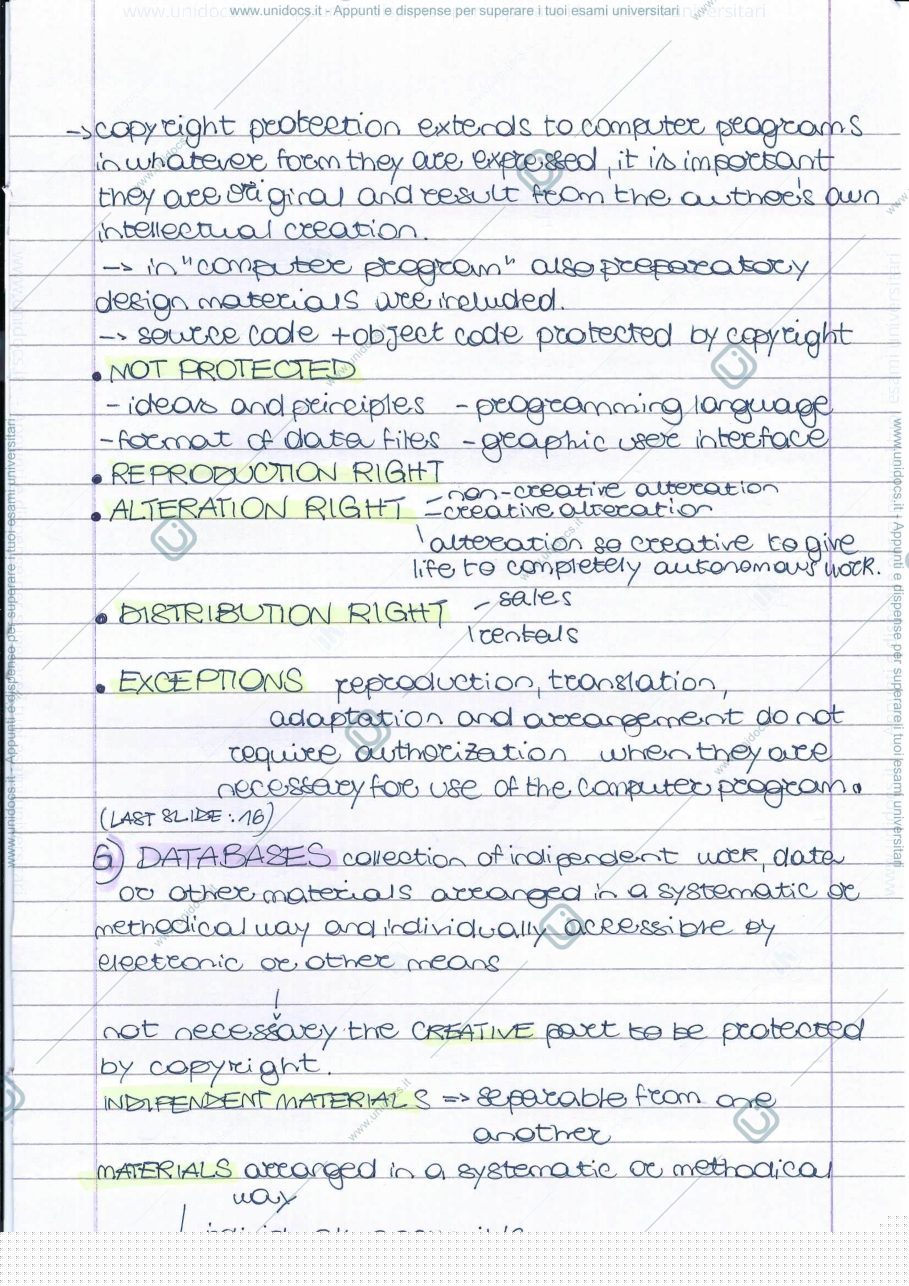 www.unidocs.it - Appunti e dispense per superare i tuoi esami universitari
-> copyright protection extends to computer programs
in whatever form they are expressed, it is important
they are original and result from the author's own
intellectual creation.
-> in "computer program" also preparatory
design materials are included.
-> source code + object code protected by copyright
• NOT PROTECTED
- ideas and principles - programming language
- format of data files - graphic user interface
• REPRODUCTION RIGHT
• ALTERATION RIGHT - non-creative alteration
- creative alteration
\ alteration so creative to give
life to completely autonomous work.
• DISTRIBUTION RIGHT - sales
\ rentals
• EXCEPTIONS reproduction, translation,
adaptation and arrangement do not
require authorization when they are
necessary for use of the computer program.
(LAST SLIDE: 16)
6) DATABASES collection of indipendent work, data
or other materials arranged in a systematic or
methodical way and individually accessible by
electronic or other means
not necessary the CREATIVE part to be protected
by copyright.
INDIPENDENT MATERIALS => separable from one
another
MATERIALS arranged in a systematic or methodical
way
www.unidocs.it - Appunti e dispense per superare i tuoi esami universitari
www.unidocs.it - Appunti e dispense per superare i tuoi esami universitari